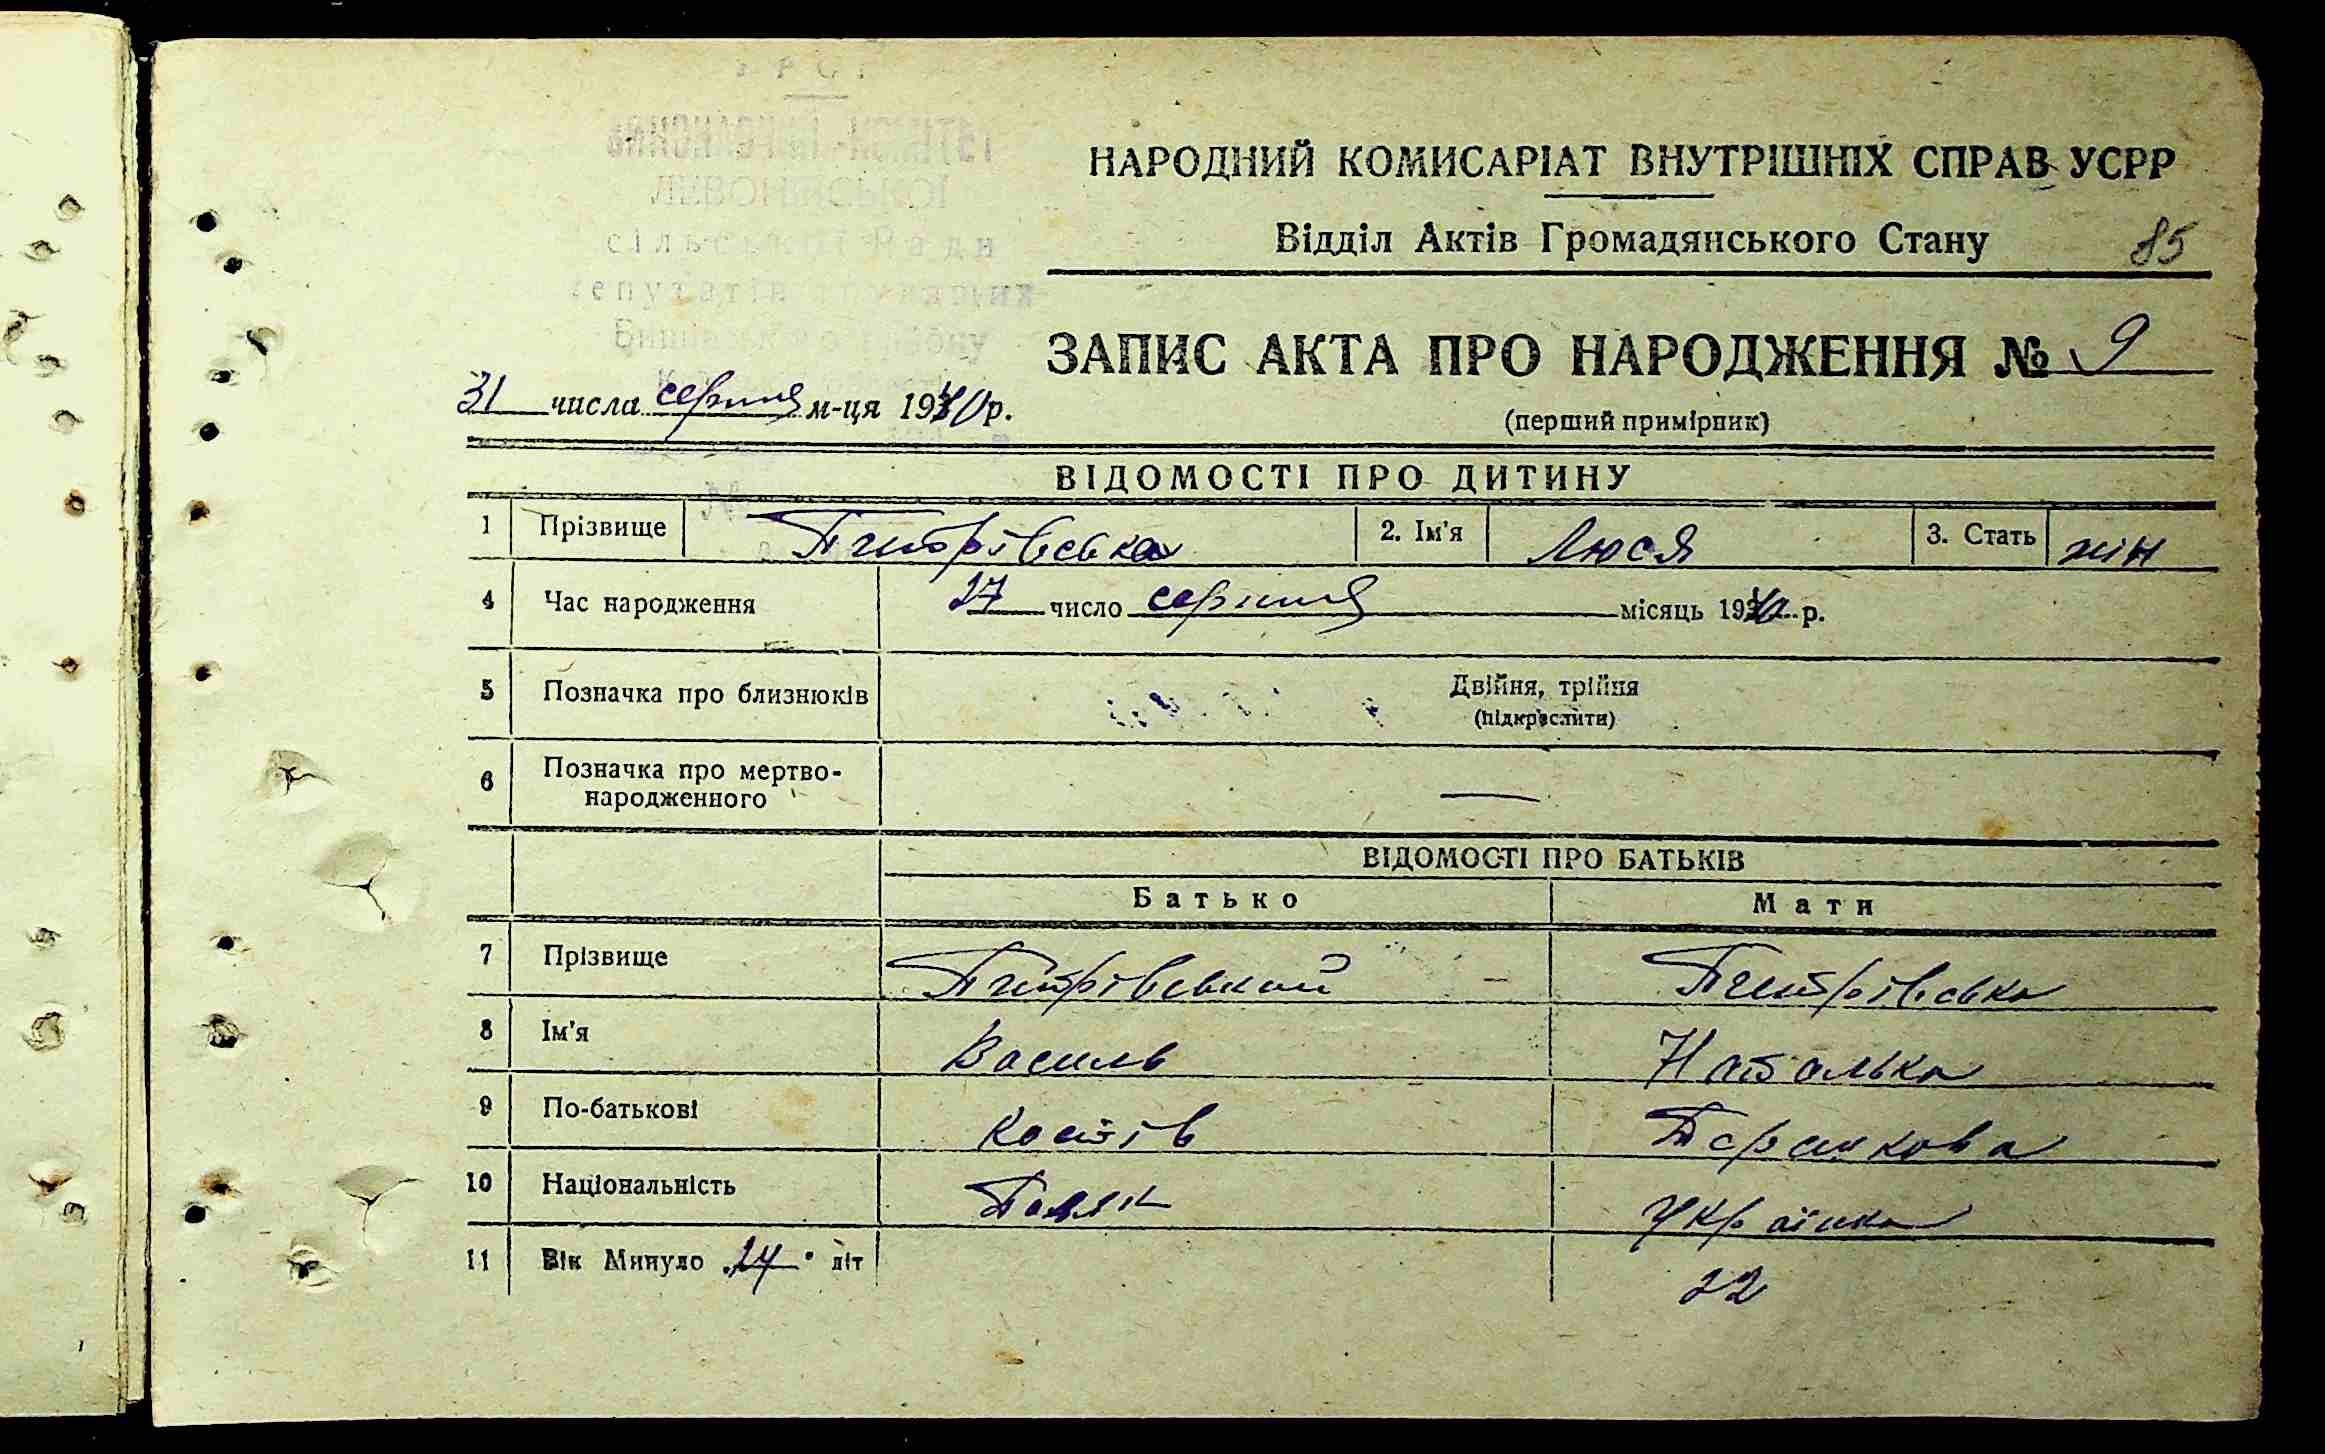 НАРОДНИЙ КОМИСАРІАТ ВНУТРІШНІХ СПРАВ УСРР
Відділ Актів Громадянського Стану 85
сільської Ради
ЗАПИС АКТА ПРО НАРОДЖЕННЯ № 9
31 числа серпня м-ця 1940 р.
(перший примірник)
ВІДОМОСТІ ПРО ДИТИНУ
1 Прізвище 2. Ім'я Люся 3. Стать жін
4 Час народження 27 число серпня місяць 1940 р.
5 Позначка про близнюків Двійня, трійня
(підкреслити)
6 Позначка про мертво-
народженного —
ВІДОМОСТІ ПРО БАТЬКІВ
Батько Мати
7 Прізвище
8 Ім'я Василь Наталька
9 По-батькові Костів
10 Національність Поляк Українка
11 Вік Минуло 24 літ 22